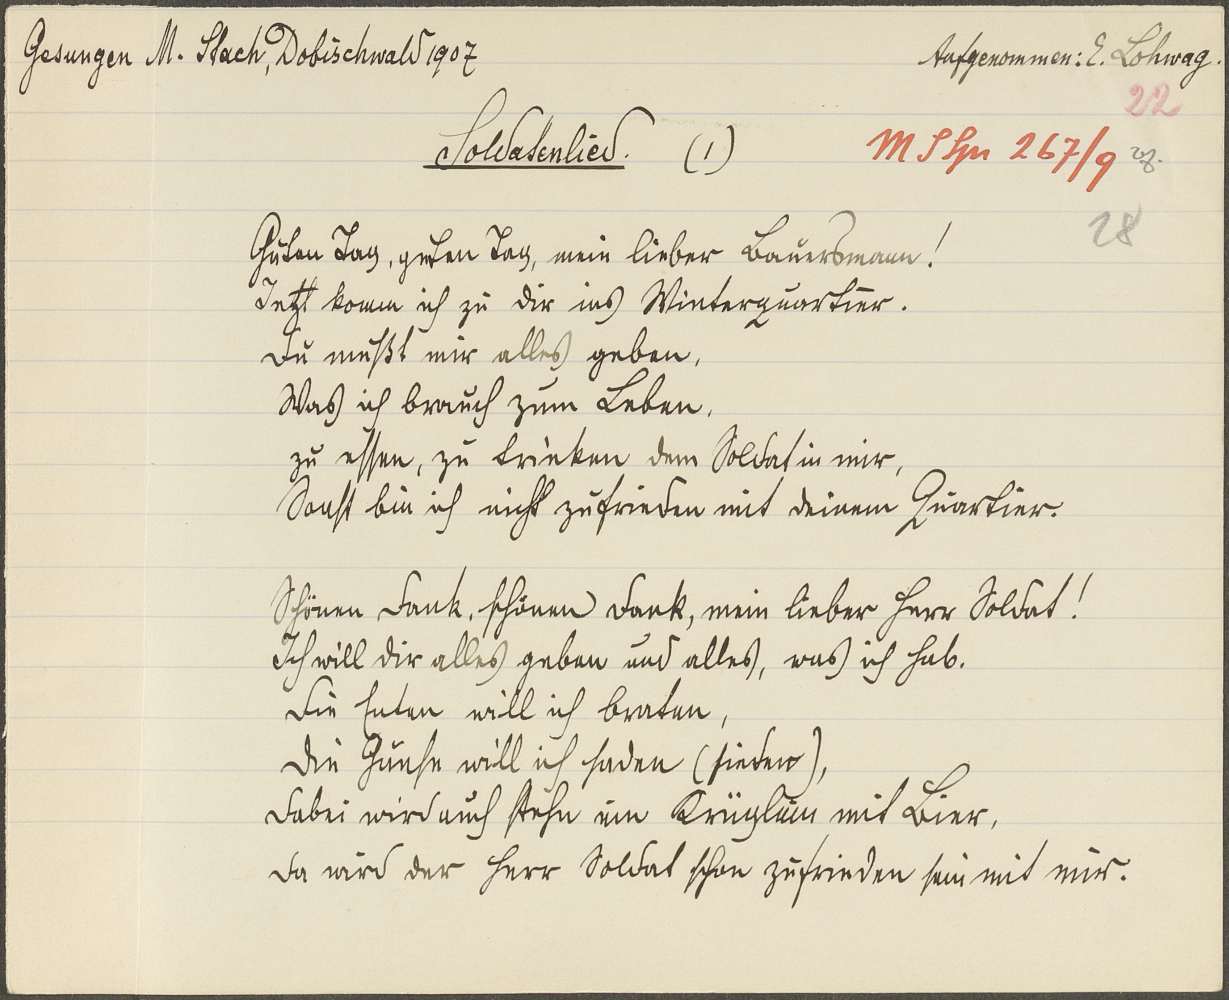 Gesungen M. Stach, Dobischwald 1907
Aufgenommen: E. Lohwag.
22
Soldatenlied. (1)
267/9
28
Guten Tag, guten Tag, mein lieber Bauersmann!
Jetzt komm ich zu dir ins Winterquartier.
Du mußt mir alles geben,
Was ich brauch zum Leben,
zu essen, zu trinken dem Soldat in mir,
Sonst bin ich nicht zufrieden mit deinem Quartier.
Schönen Dank, schönen Dank, mein lieber Herr Soldat!
Ich will dir alles geben und alles, was ich hab.
Die Enten will ich braten,
Die Gänse will ich saden (sieden),
Dabei wird auch stehn ein Krüglein mit Bier,
Da wird der Herr Soldat schon zufrieden sein mit mir.